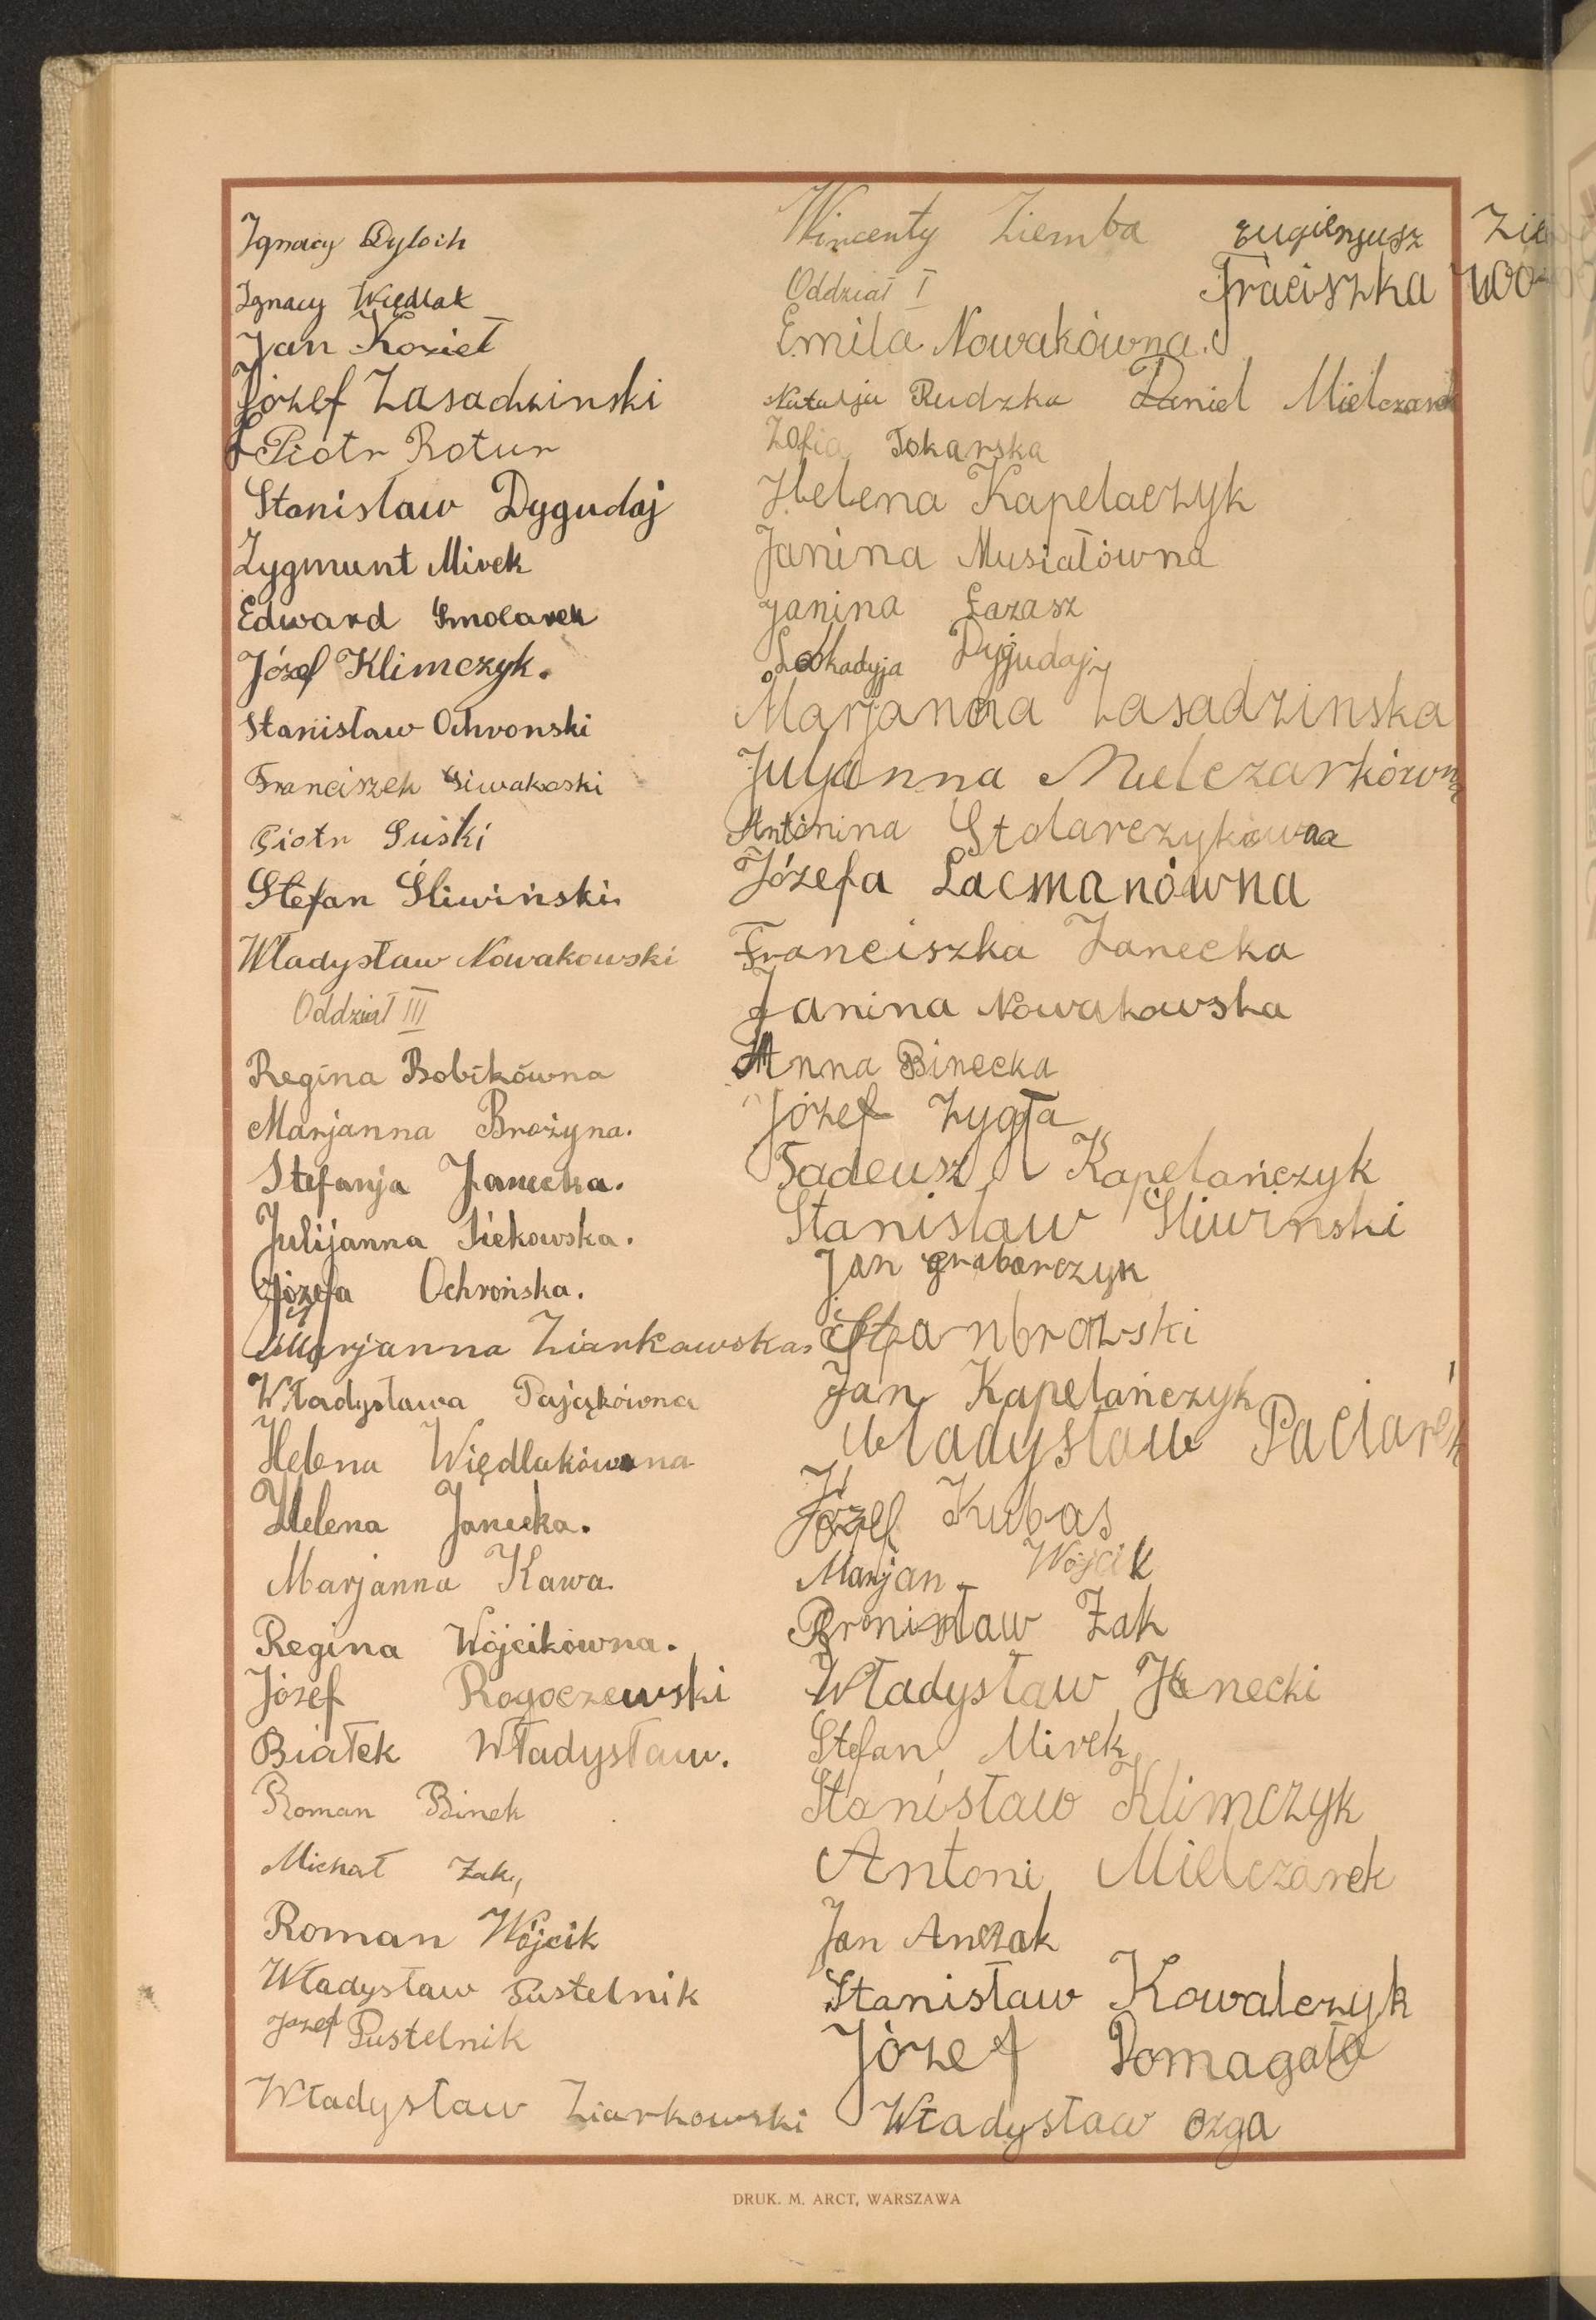 Ignacy Dyloch
Ignacy Więdłak
Jan Kozieł
Józef Zasadzinski
Piotr Rotur
Stanislaw Dygudaj
Zygmunt Mirek
Edward Smolarek
Józef Klimczyk.
Stanisław Ochronski
Franciszek Siwakoski
Piotr Suski
Stefan Śliwiński.
Władysław Nowakowski
Oddział III
Regina Bobikówna
Marjanna Brożyna.
Stefanja Janecka.
Julijanna Siekowska.
Józefa Ochrońska.
Marjanna Ziarkawska
Władysława Pająkówna
Helena Więdlakówna
Helena Janecka.
Marjanna Kawa.
Regina Wójcikówna.
Józef Rogoczewski
Białek Władysław.
Roman Binek
Michał Żak,
Roman Wójcik
Władysław Pustelnik
Józef Pustelnik
Władysław Ziarkowski
Wincenty Ziemba Eugienjusz
Oddział I Fraciszka
Emila Nowakówna.
Natalja Rudzka Daniel Mielczarek
Zofia Tokarska
Helena Kapelaczyk
Janina Musiałówna
Janina Łazasz
Leokadyja Dygudaj
Marjanna Zasadzinska
Juljanna Mielczarkówna
Antonina Stolarczykówna
Józefa Lacmanówna
Franciszka Janecka
Janina Nowakowska
Anna Binecka
Józef Zygła
Tadeusz Kapelańczyk
Stanislaw Śliwinski
Jan graborczyk
Jan Kapelańczyk
Władysław Paciarek
Józef Kubas
Marjan Wójcik
Bronisław Żak
Władysław Janecki
Stefan Mirek
Stanisław Klimczyk
Antoni Mielczarek
Jan Anczak
Stanisław Kowalczyk
Józef Domagała
Władysław Ozga
DRUK. M. ARCT, WARSZAWA